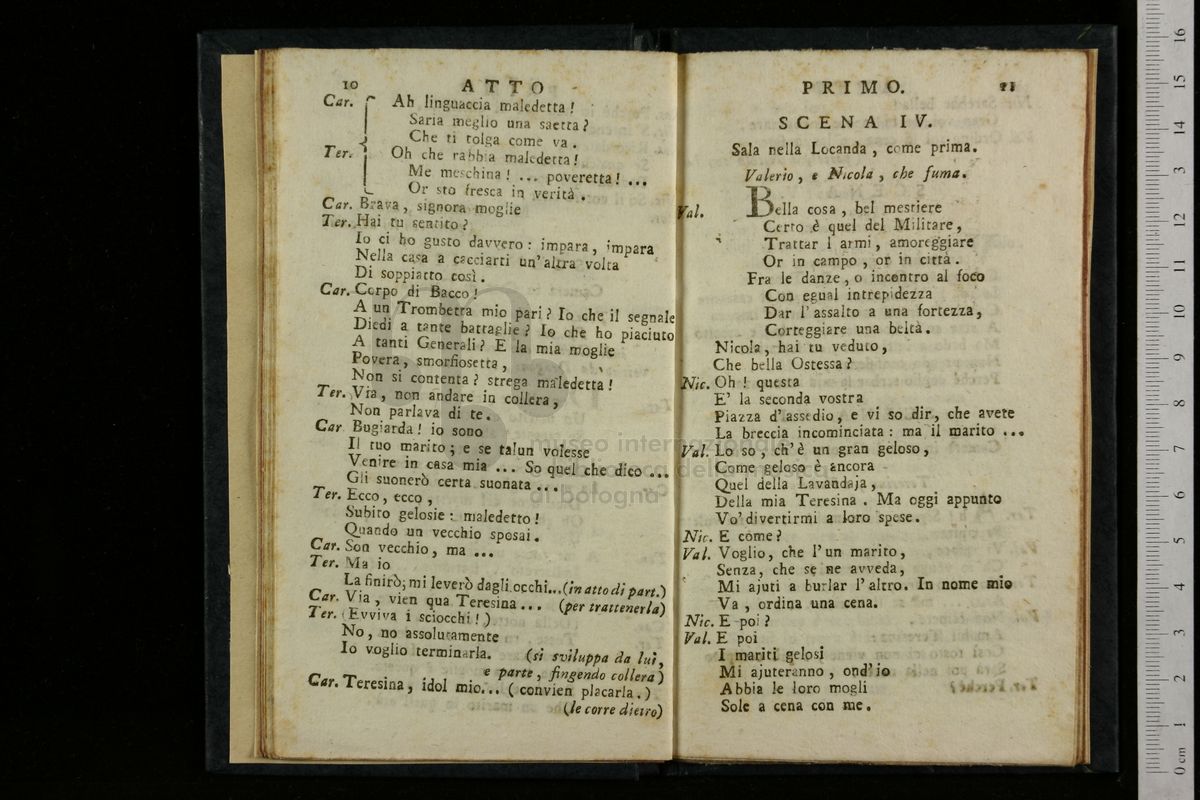 10 ATTO
Car. Ah linguaccia maledetta!
Saria meglio una saetta?
Che ti tolga come va.
Ter. Oh che rabbia maledetta!
Me meschina! ... poveretta! ...
Or sto fresca in verità.
Car. Brava, signora moglie
Ter. Hai tu sentito?
Io ci ho gusto davvero: impara, impara
Nella casa a cacciarti un'altra volta
Di soppiatto così.
Car. Corpo di Bacco!
A un Trombetta mio pari? Io che il segnale
Diedi a tante battaglie? Io che ho piaciuto
A tanti Generali? E la mia moglie
Povera, smorfiosetta,
Non si contenta? strega maledetta!
Ter. Via, non andare in collera,
Non parlava di te.
Car Bugiarda! io sono
Il tuo marito; e se talun volesse
Venire in casa mia ... So quel che dico ...
Gli suonerò certa suonata ...
Ter. Ecco, ecco,
Subito gelosie: maledetto!
Quando un vecchio sposai.
Car. Son vecchio, ma ...
Ter. Ma io
La finirò; mi leverò dagli occhi... (in atto di part.)
Car. Via, vien qua Teresina ... (per trattenerla)
Ter. (Evviva i sciocchi!)
No, no assolutamente
Io voglio terminarla. (si sviluppa da lui,
e parte, fingendo collera)
Car. Teresina, idol mio... (convien placarla.)
(le corre dietro)
PRIMO. 11
SCENA IV.
Sala nella Locanda, come prima.
Valerio, e Nicola, che fuma.
Val. Bella cosa, bel mestiere
Certo è quel del Militare,
Trattar l armi, amoreggiare
Or in campo, or in città.
Fra le danze, o incontro al foco
Con egual intrepidezza
Dar l'assalto a una fortezza,
Corteggiare una beltà.
Nicola, hai tu veduto,
Che bella Ostessa?
Nic. Oh! questa
E' la seconda vostra
Piazza d'assedio, e vi so dir, che avete
La breccia incominciata: ma il marito ...
Val. Lo so, ch'è un gran geloso,
Come geloso è ancora
Quel della Lavandaja,
Della mia Teresina. Ma oggi appunto
Vo' divertirmi a loro spese.
Nic. E come?
Val. Voglio, che l'un marito,
Senza, che se ne avveda,
Mi ajuti a burlar l'altro. In nome mio
Va, ordina una cena.
Nic. E poi?
Val. E poi
I mariti gelosi
Mi ajuteranno, ond'io
Abbia le loro mogli
Sole a cena con me.
museo internazionale
biblioteca della musica
di bologna
0 cm 1 2 3 4 5 6 7 8 9 10 11 12 13 14 15 16